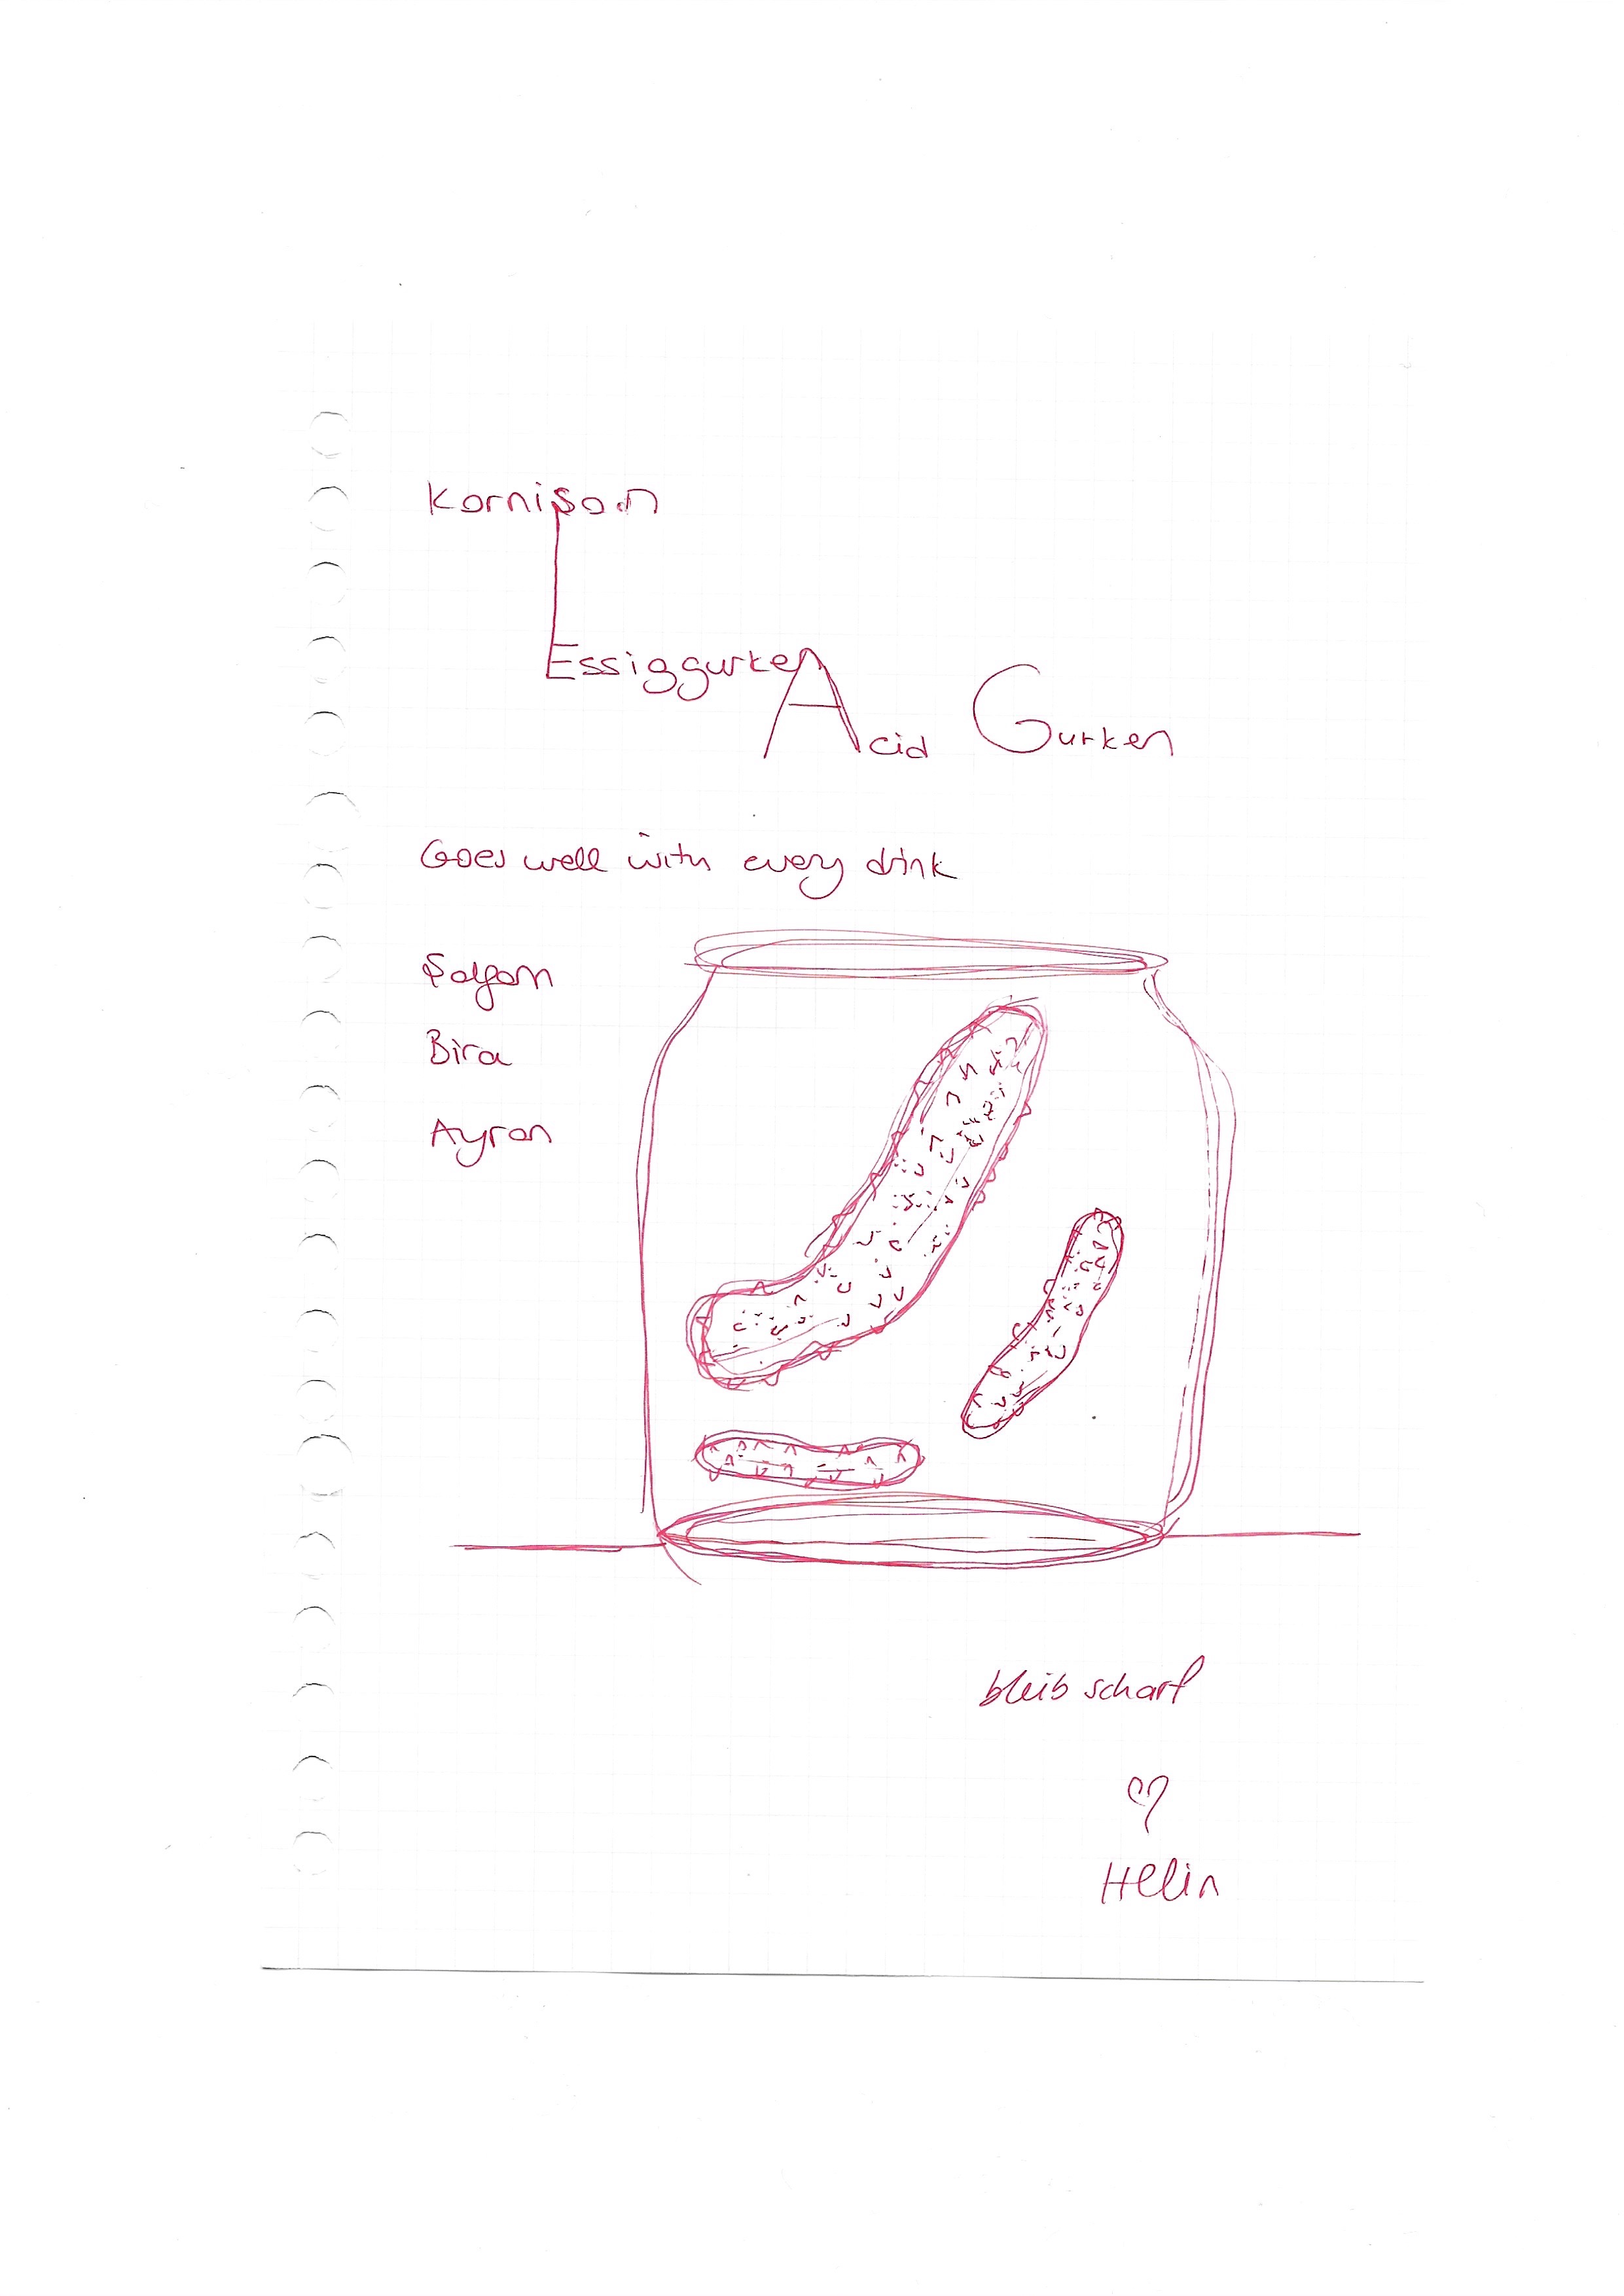 Kornişon
Essiggurken
Acid Gurken
Goes well with every drink
Şalgam
Bira
Ayran
bleib scharf
Helin